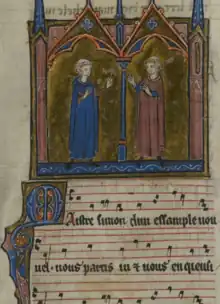 Maistre simon dun essample nou
uel. nous partis iu & nous enqeusi